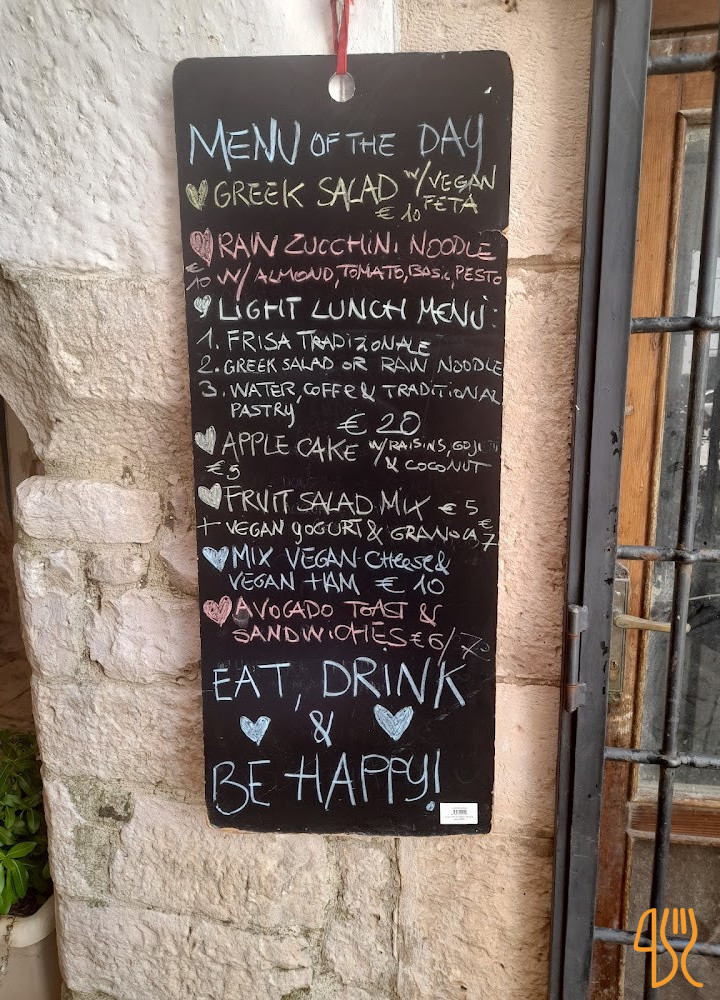 MENU OF THE DAY
GREEK SALAD w/VEGAN FETA
€ 10
RAW ZUCCHINI NOODLE
€ 10 W/ALMOND, TOMATO, BASIC, PESTO
LIGHT LUNCH MENU:
1. FRISA TRADIZIONALE
2. GREEK SALAD OR RAW NOODLE
3. WATER, COFFE & TRADITIONAL
PASTRY € 20
APPLE CAKE W/RAISINS, GOJI
€5 & COCONUT
FRUIT SALAD MIX € 5
+ VEGAN YOGURT & GRANOLA € 7
MIX VEGAN CHEESE &
VEGAN HAM € 10
AVOCADO TOAST &
SANDWICHES € 6/7
EAT, DRINK
&
BE HAPPY!